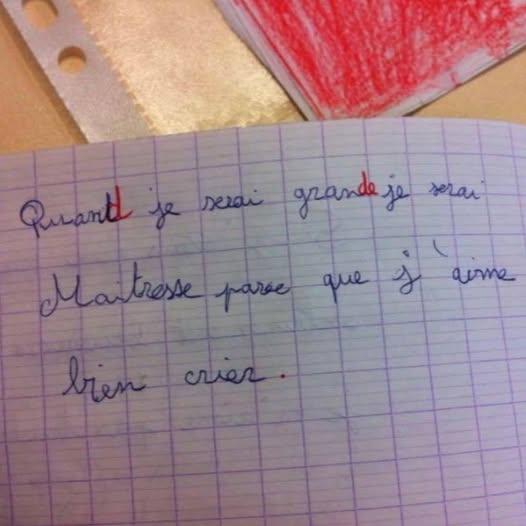 Quand je serai grande je serai
Maitresse parce que j'aime
bien crier.